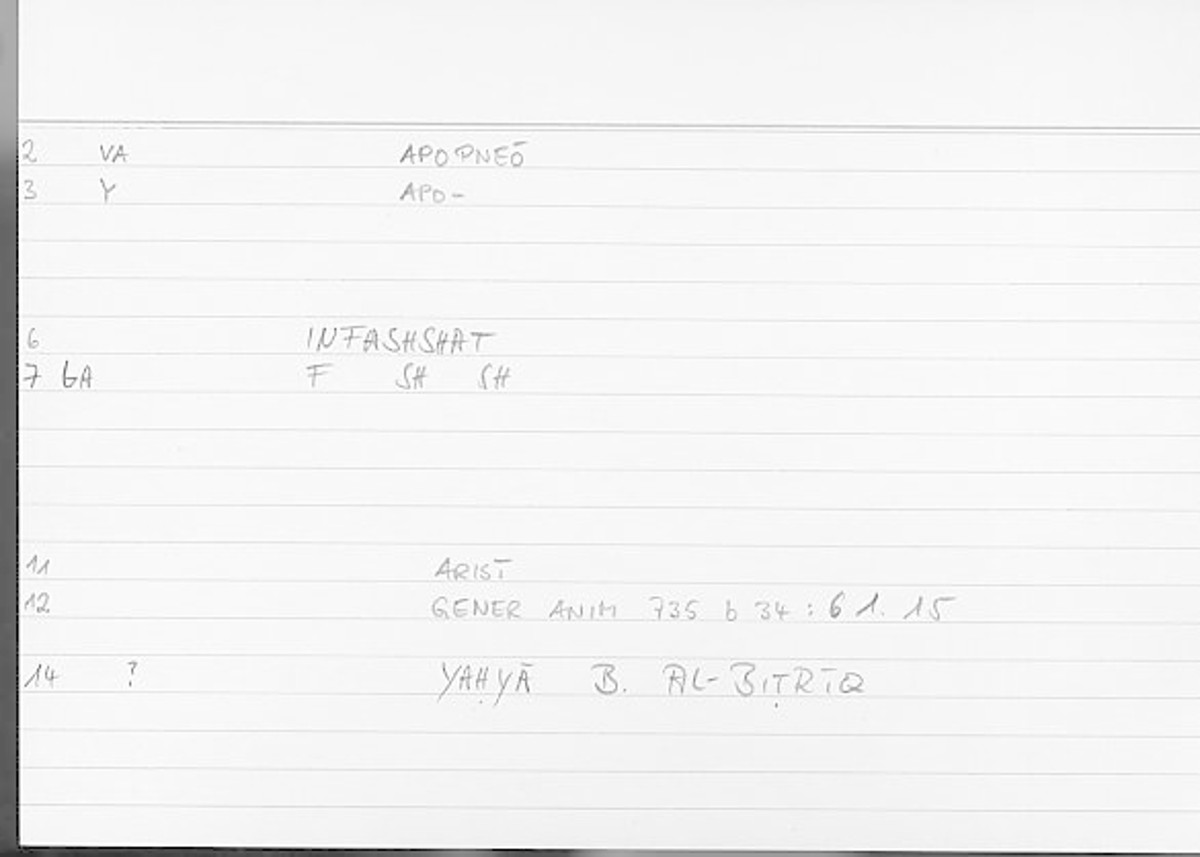 2 VA APOPNEŌ
3 Y APO-
6 INFASHSHAT
7 6A F SH SH
11 ARIST
12 GENER ANIM 735 b 34 : 61. 15
14 ? YAḤYĀ B. AL-BIṬRĪQ